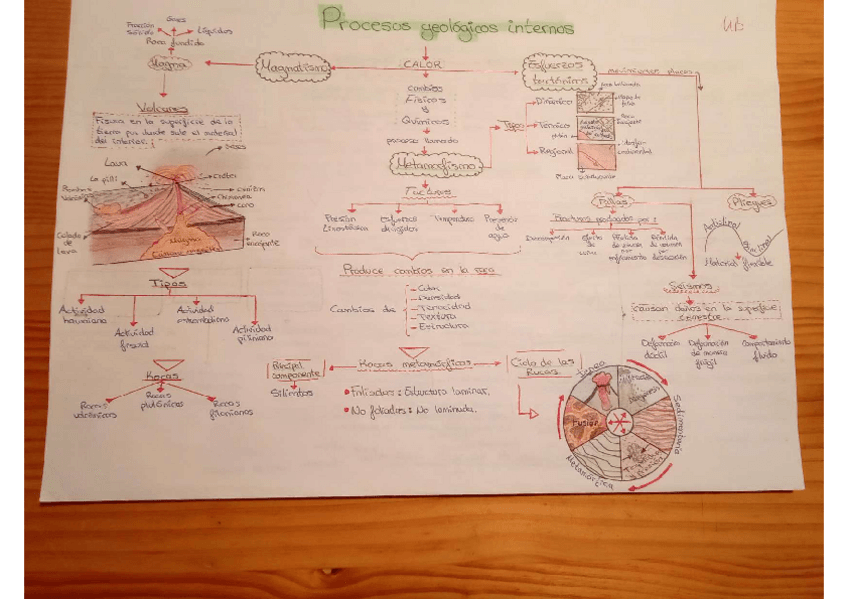 Procesos geológicos internos
Gases
Fracción
sólida
Líquidos
Roca fundida
Magma
Magmatismo
CALOR
Esfuerzos
tectónicos
Volcanes
Fisura en la superficie de la
tierra por donde sale el material
del interior.
Gases
Lava
Lapilli
Cráter
Chimenea
Cono
Colada de
lava
Magma
Cámara magmática
Roca
Tipos
Actividad
hawaiana
Actividad
Actividad
estromboliana
Actividad
pliniana
Rocas
Rocas
volcánicas
Rocas
plutónicas
Rocas
filonianas
cambios
Físicos
y
Químicos
proceso llamado
Metamorfismo
Tipos
Dinámico
Térmico
Regional
Placa subducente
Factores
Presión
Litostática
Esfuerzos
Temperatura
Presencia
de
agua
Produce cambios en la roca
Cambios de
Color
Densidad
Tenacidad
Textura
Estructura
Principal
componente
Silicatos
Rocas metamórficas
Foliadas: Estructura laminar.
No foliadas: No laminada.
Ciclo de las
Rocas
Fallas
Pliegues
Fracturas producidas por:
Descompresión
Anticlinal
Sinclinal
Material flexible
Seismos
Causan daños en la superficie
terrestre
Deformación
dúctil
Deformación
de manera
frágil
Comportamiento
fluido
Ígnea
Sedimentaria
Metamórfica
Fusión